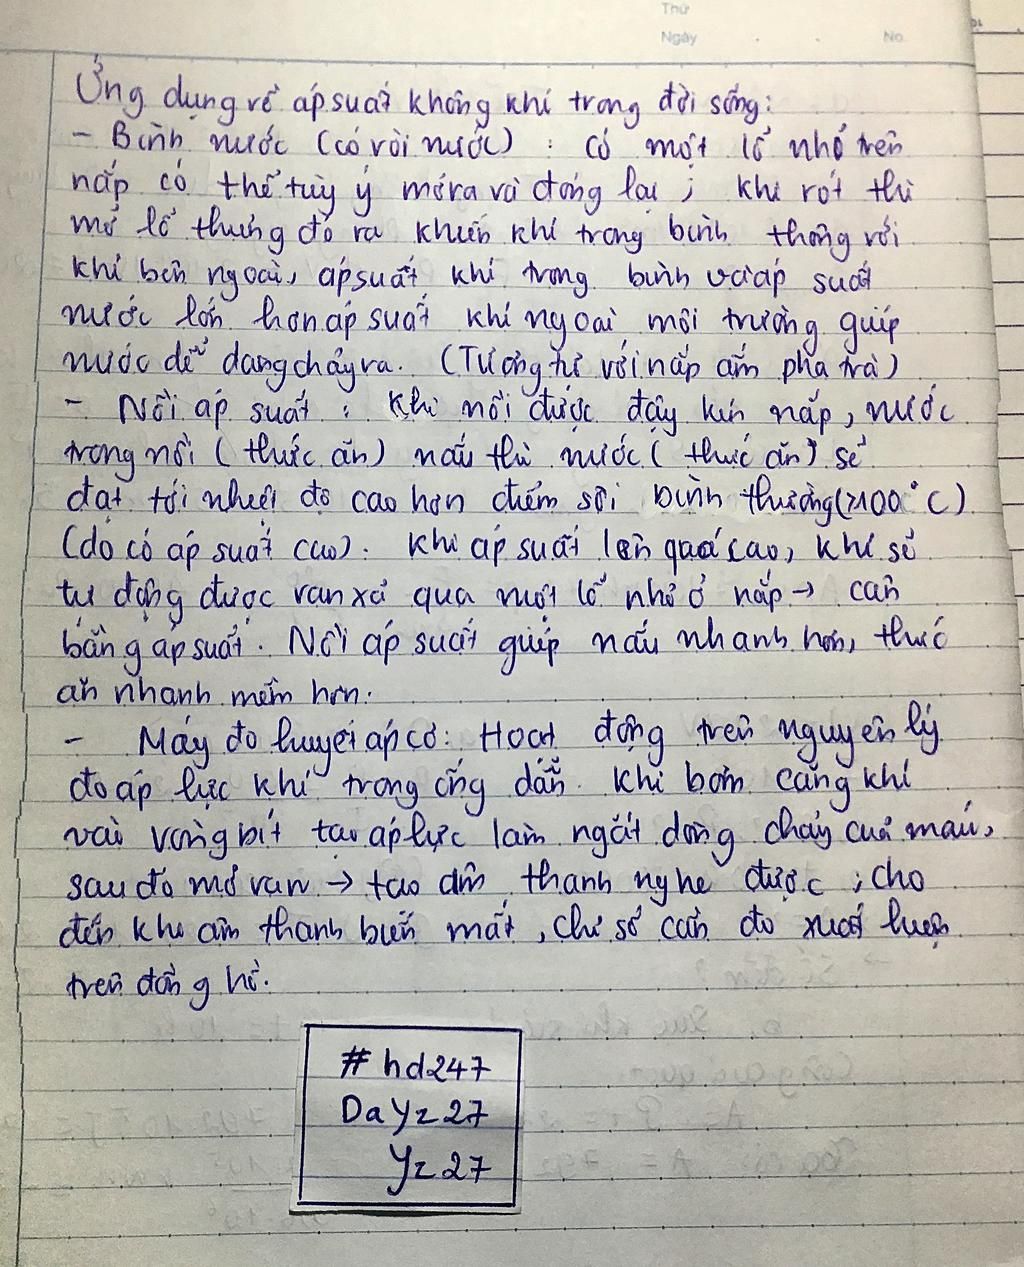 Thứ
Ngày . . No.
Ứng dụng về áp suất không khí trong đời sống:
- Bình nước (có vòi nước) : có một lỗ nhỏ trên
nắp có thể tùy ý mở ra và đóng lại ; khi rót thì
mở lỗ thủng đó ra khiến khí trong bình thông với
khí bên ngoài, áp suất khí trong bình và áp suất
nước lớn hơn áp suất khí ngoài môi trường giúp
nước dễ dàng chảy ra. (Tương tự với nắp ấm pha trà)
- Nồi áp suất : khi nồi được đậy kín nắp, nước
trong nồi (thức ăn) nấu thì nước (thức ăn) sẽ
đạt tới nhiệt độ cao hơn điểm sôi bình thường (>100°C)
(do có áp suất cao). Khi áp suất lên quá cao, khí sẽ
tự động được van xả qua một lỗ nhỏ ở nắp → cân
bằng áp suất. Nồi áp suất giúp nấu nhanh hơn, thức
ăn nhanh mềm hơn.
- Máy đo huyết áp cơ: Hoạt động trên nguyên lý
đo áp lực khí trong ống dẫn. Khi bơm căng khí
vài vòng bít tạo áp lực làm ngắt dòng chảy của máu,
sau đó mở van → tạo âm thanh nghe được ; cho
đến khi âm thanh biến mất, chỉ số cần đo xuất hiện
trên đồng hồ.
# hd247
DaYz27
Yz27